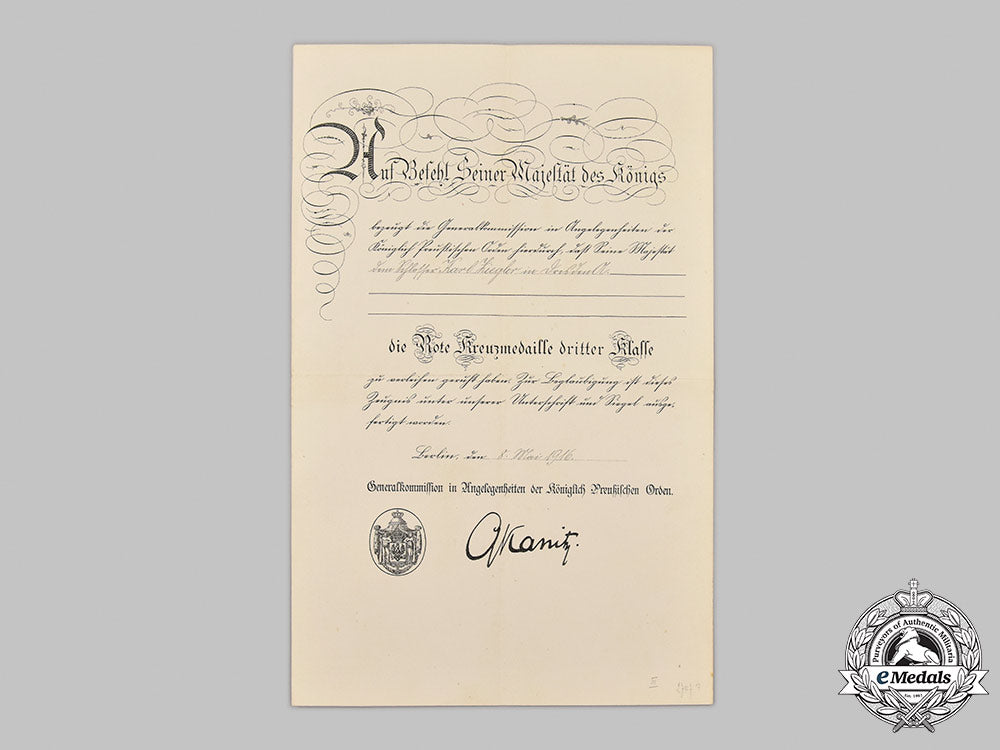 Auf Befehl Seiner Majestät des Königs
bezeugt die Generalkommission in Angelegenheiten der
Königlich Preußischen Orden hierdurch, daß Seine Majestät
dem Schlosser Karl Ziegler in Dresden A.
die Rote Kreuzmedaille dritter Klasse
zu verleihen geruht haben. Zur Beglaubigung ist dieses
Zeugnis unter unserer Unterschrift und Siegel ausge-
fertigt worden.
Berlin, den 8. Mai 1916.
Generalkommission in Angelegenheiten der Königlich Preußischen Orden.
Kanitz.
II
Purveyors of Authentic Militaria
eMedals